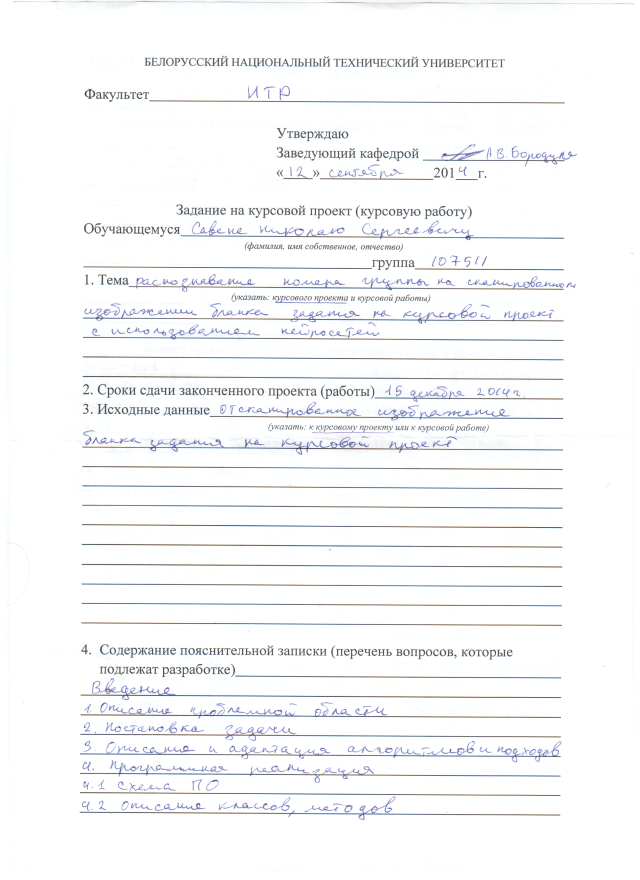 БЕЛОРУССКИЙ НАЦИОНАЛЬНЫЙ ТЕХНИЧЕСКИЙ УНИВЕРСИТЕТ
Факультет ИТР
Утверждаю
Заведующий кафедрой А.В. Бородуля
«12» сентября 2014 г.
Задание на курсовой проект (курсовую работу)
Обучающемуся Савене Николаю Сергеевичу
(фамилия, имя собственное, отчество)
группа 107511
1. Тема распознавание номера группы на сканированном
(указать: курсового проекта и курсовой работы)
изображении бланка задания на курсовой проект
с использованием нейросетей
2. Сроки сдачи законченного проекта (работы) 15 декабря 2014 г.
3. Исходные данные отсканированное изображение
(указать: к курсовому проекту или к курсовой работе)
бланка задания на курсовой проект
4. Содержание пояснительной записки (перечень вопросов, которые
подлежат разработке)
Введение
1. Описание проблемной области
2. Постановка задачи
3. Описание и адаптация алгоритмов и подходов
4. Программная реализация
4.1 Схема ПО
4.2 Описание классов, методов